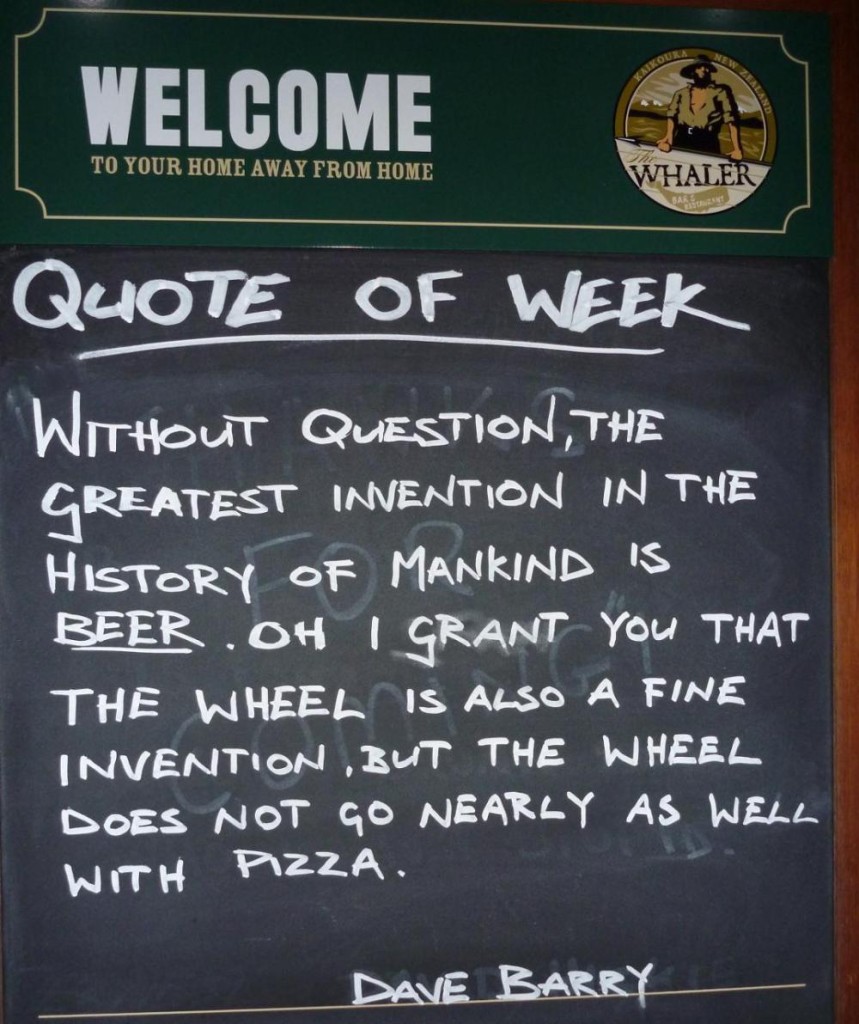 WELCOME
TO YOUR HOME AWAY FROM HOME
KAIKOURA NEW ZEALAND
The
WHALER
BAR & RESTAURANT
QUOTE OF WEEK
WITHOUT QUESTION, THE
GREATEST INVENTION IN THE
HISTORY OF MANKIND IS
BEER. OH I GRANT YOU THAT
THE WHEEL IS ALSO A FINE
INVENTION, BUT THE WHEEL
DOES NOT GO NEARLY AS WELL
WITH PIZZA.
DAVE BARRY